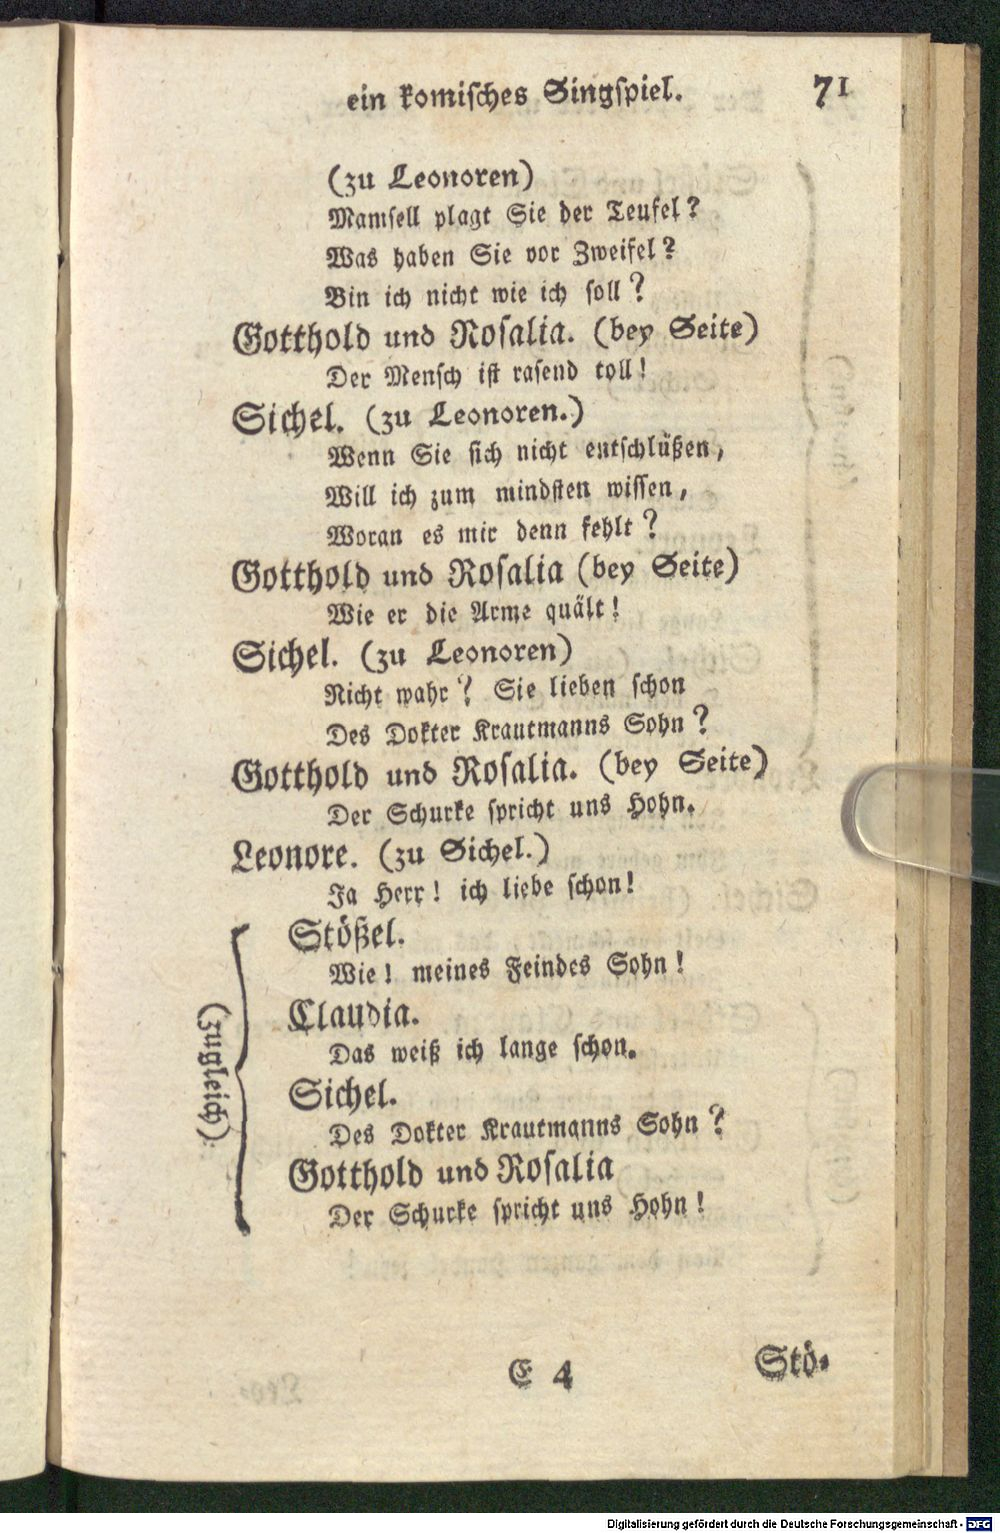 ein komisches Singspiel. 71
(zu Leonoren)
Mamsell plagt Sie der Teufel?
Was haben Sie vor Zweifel?
Bin ich nicht wie ich soll?
Gotthold und Rosalia. (bey Seite)
Der Mensch ist rasend toll!
Sichel. (zu Leonoren.)
Wenn Sie sich nicht entschlüßen,
Will ich zum mindsten wissen,
Woran es mir denn fehlt?
Gotthold und Rosalia (bey Seite)
Wie er die Arme quält!
Sichel. (zu Leonoren)
Nicht wahr? Sie lieben schon
Des Dokter Krautmanns Sohn?
Gotthold und Rosalia. (bey Seite)
Der Schurke spricht uns Hohn.
Leonore. (zu Sichel.)
Ja Herr! ich liebe schon!
(zugleich)
Stößel.
Wie! meines Feindes Sohn!
Claudia.
Das weiß ich lange schon.
Sichel.
Des Dokter Krautmanns Sohn?
Gotthold und Rosalia
Der Schurke spricht uns Hohn!
E 4 Stö-
Digitalisierung gefördert durch die Deutsche Forschungsgemeinschaft - DFG